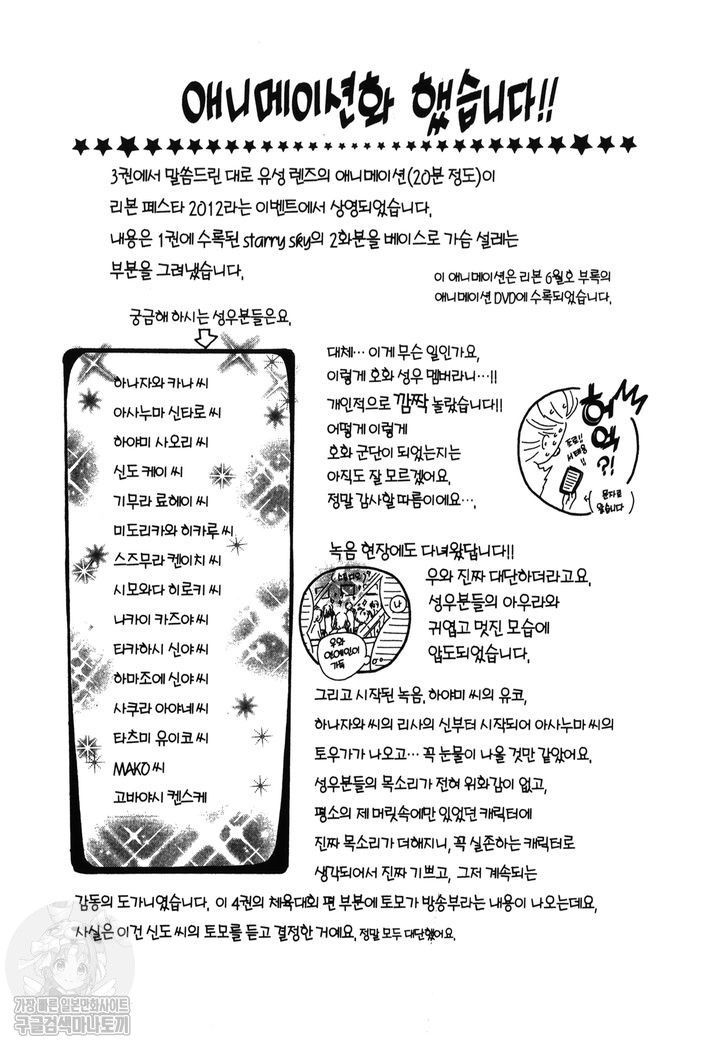 애니메이션화 했습니다!!
3권에서 말씀드린 대로 유성 렌즈의 애니메이션(20분 정도)이
리본 페스타 2012라는 이벤트에서 상영되었습니다.
내용은 1권에 수록된 starry sky의 2화분을 베이스로 가슴 설레는
부분을 그려냈습니다.
이 애니메이션은 리본 6월호 부록의
애니메이션 DVD에 수록되었습니다.
궁금해 하시는 성우분들은요.
하나자와 카나 씨
아사누마 신타로 씨
하야미 사오리 씨
신도 케이 씨
기무라 료헤이 씨
미도리카와 히카루 씨
스즈무라 켄이치 씨
시모와다 히로키 씨
나카이 카즈야 씨
타카하시 신야 씨
하마조에 신야 씨
사쿠라 아야네 씨
타츠미 유이코 씨
MAKO 씨
고바야시 켄스케
대체… 이게 무슨 일인가요,
이렇게 호화 성우 멤버라니…!!
개인적으로 깜짝 놀랐습니다!!
어떻게 이렇게
호화 군단이 되었는지는
아직도 잘 모르겠어요,
정말 감사할 따름이에요…,
헉
?!
문자로
왔습니다
녹음 현장에도 다녀왔답니다!!
우와 진짜 대단하더라고요,
성우분들의 아우라와
귀엽고 멋진 모습에
압도되었습니다.
(스튜디오)
나
우와
연예인이
가득
그리고 시작된 녹음, 하야미 씨의 유코,
하나자와 씨의 리사의 신부터 시작되어 아사누마 씨의
토우가가 나오고… 꼭 눈물이 나올 것만 같았어요,
성우분들의 목소리가 전혀 위화감이 없고,
평소의 제 머릿속에만 있었던 캐릭터에
진짜 목소리가 더해지니, 꼭 실존하는 캐릭터로
생각되어서 진짜 기쁘고, 그저 계속되는
감동의 도가니였습니다. 이 4권의 체육대회 편 부분에 토모가 방송부라는 내용이 나오는데요,
사실은 이건 신도 씨의 토모를 듣고 결정한 거예요. 정말 모두 대단했어요.
가장 빠른 일본만화사이트
구글검색마나토끼